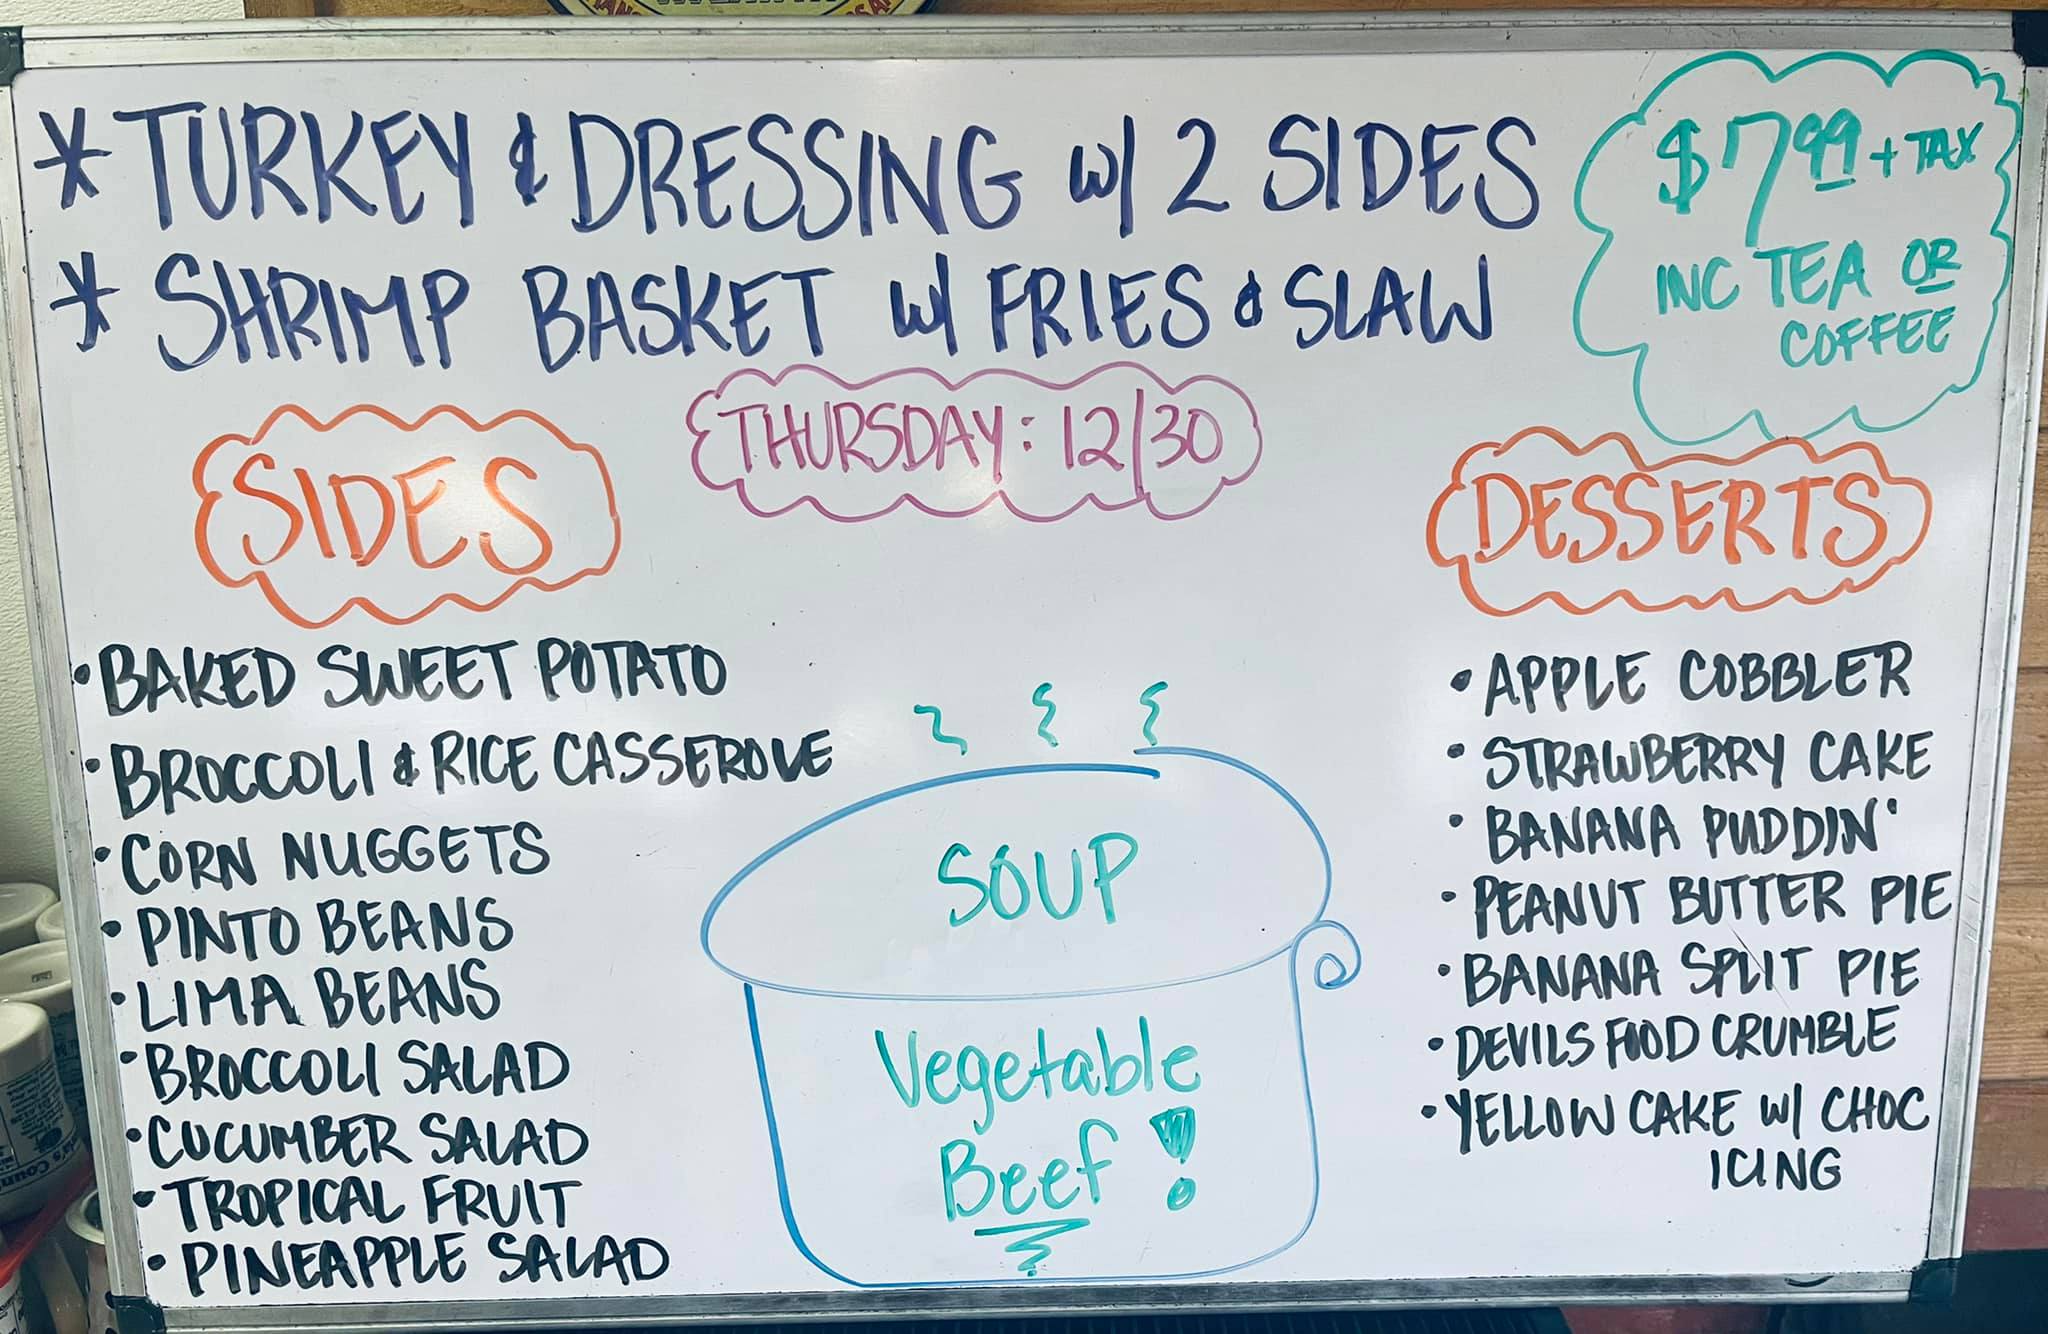 * TURKEY & DRESSING w/ 2 SIDES
* SHRIMP BASKET w/ FRIES & SLAW
$7.99 + TAX
INC TEA OR
COFFEE
THURSDAY: 12/30
SIDES
• BAKED SWEET POTATO
• BROCCOLI & RICE CASSEROLE
• CORN NUGGETS
• PINTO BEANS
• LIMA BEANS
• BROCCOLI SALAD
• CUCUMBER SALAD
• TROPICAL FRUIT
• PINEAPPLE SALAD
SOUP
Vegetable
Beef!
DESSERTS
• APPLE COBBLER
• STRAWBERRY CAKE
• BANANA PUDDIN'
• PEANUT BUTTER PIE
• BANANA SPLIT PIE
• DEVILS FOOD CRUMBLE
• YELLOW CAKE w/ CHOC
ICING